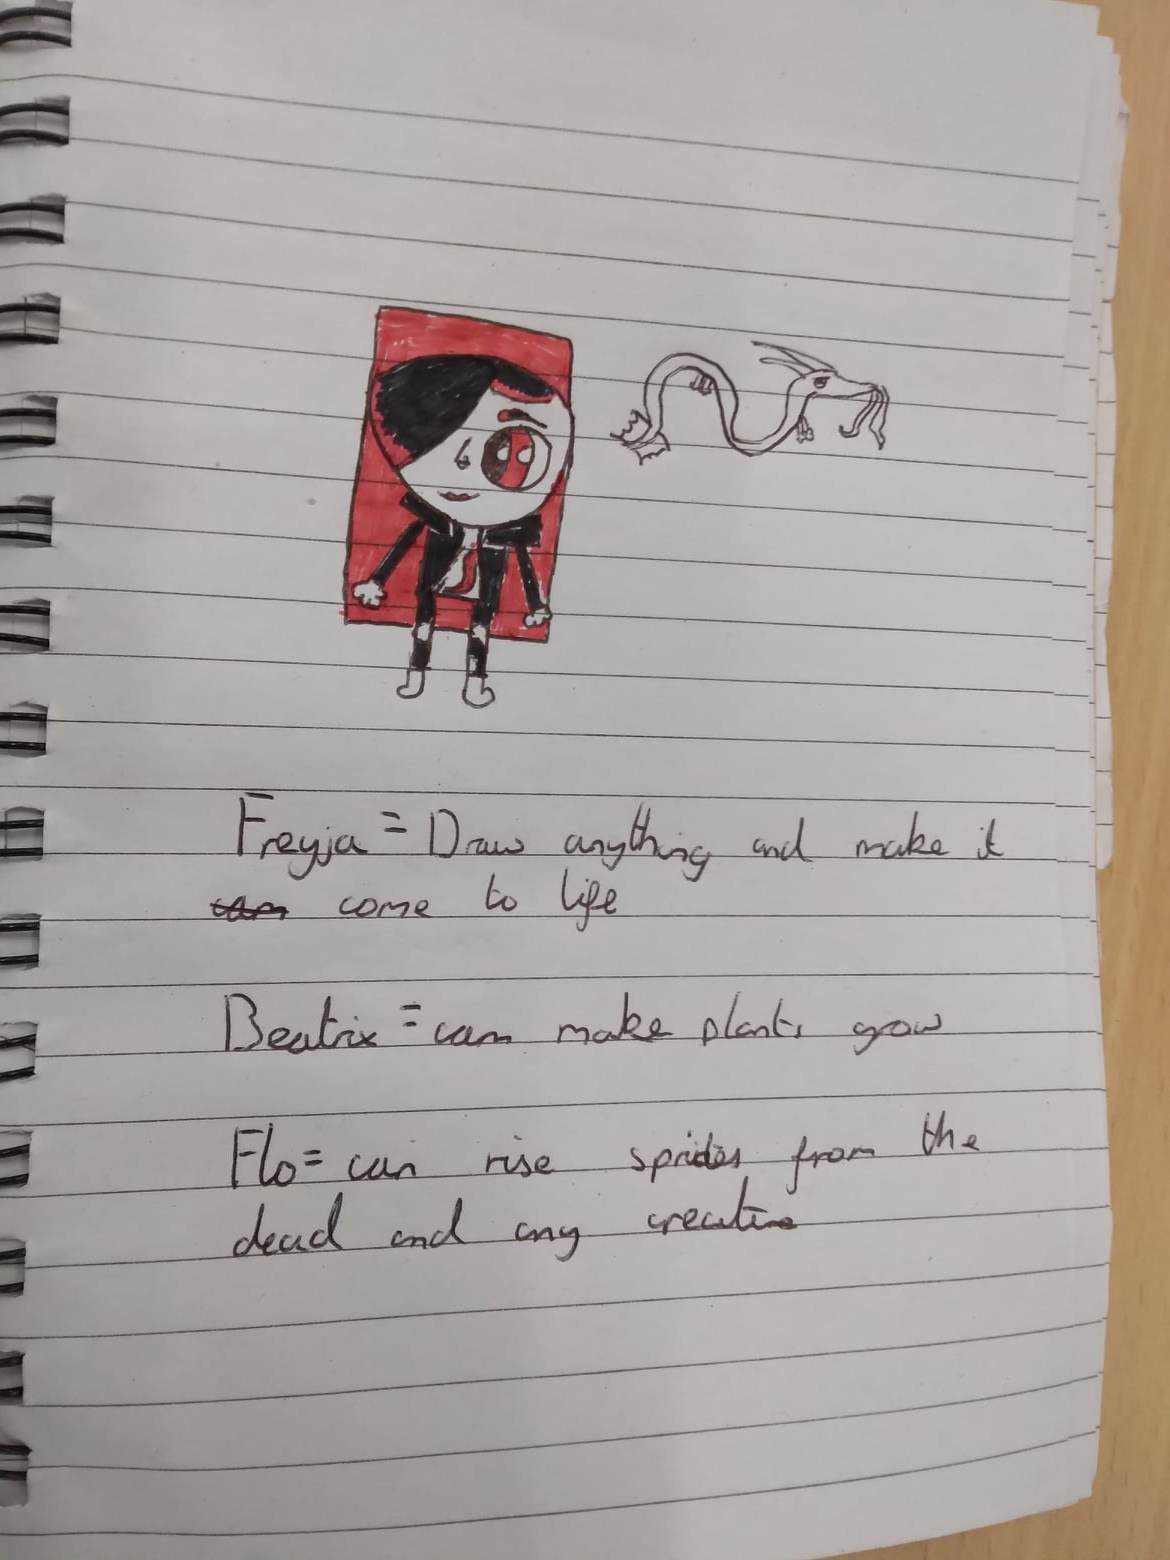 Freyja = Draw anything and make it
come to life
Beatrix = can make plants grow
Flo = can rise from the
dead and any creature